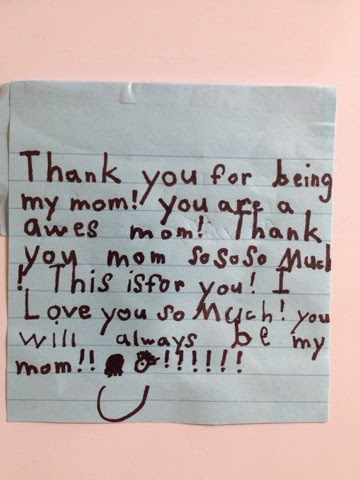 Thank you for being
my mom! you are a
awes mom! Thank
you mom sososo Much
! This isfor you! I
Love you so Much! you
will always be my
mom!! !!!!!!